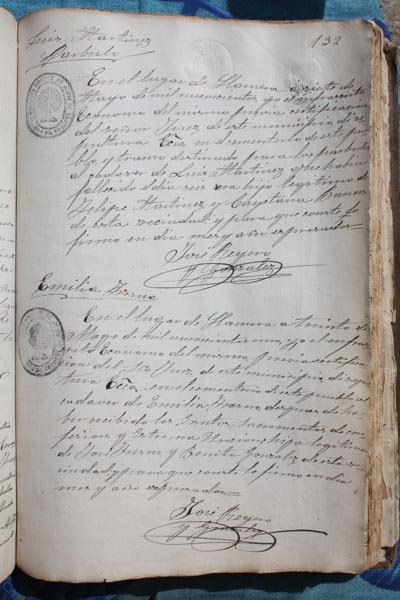 132
Luis Martinez
Parbulo
En el lugar de Llamera a siete de
Mayo de mil novecientos, yo el infrascrito
Economo del mismo previa certificación
del señor Juez de este municipio di se
pultura Ecca en el cementerio de este pue
blo y tramo destinado para los parbulos
al cadaver de Luis Martinez que habia
fallecido el dia seis era hijo legitimo de
Felipe Martinez y Cayetana
de esta vecindad; y para que conste, lo
firmo en dia mes y año expresados
José Reyero
y Gonzalez
Emilia
En el lugar de Llamera a treinta de
Mayo de mil novecientos uno, yo el infras
crito Economo del mismo, previa certifica
cion del Sr. Juez de este municipio di sepul
tura Ecca en el cementerio de este pueblo al
cadaver de Emilia despues de ha
ber recibido los Santos Sacramentos de con
fesion y Extrema Uncion, hija legitima
de José y Benita Gonzalez de esta ve
cindad y para que conste lo firmo en dia
mes y año expresados
José Reyero
y Gonzalez